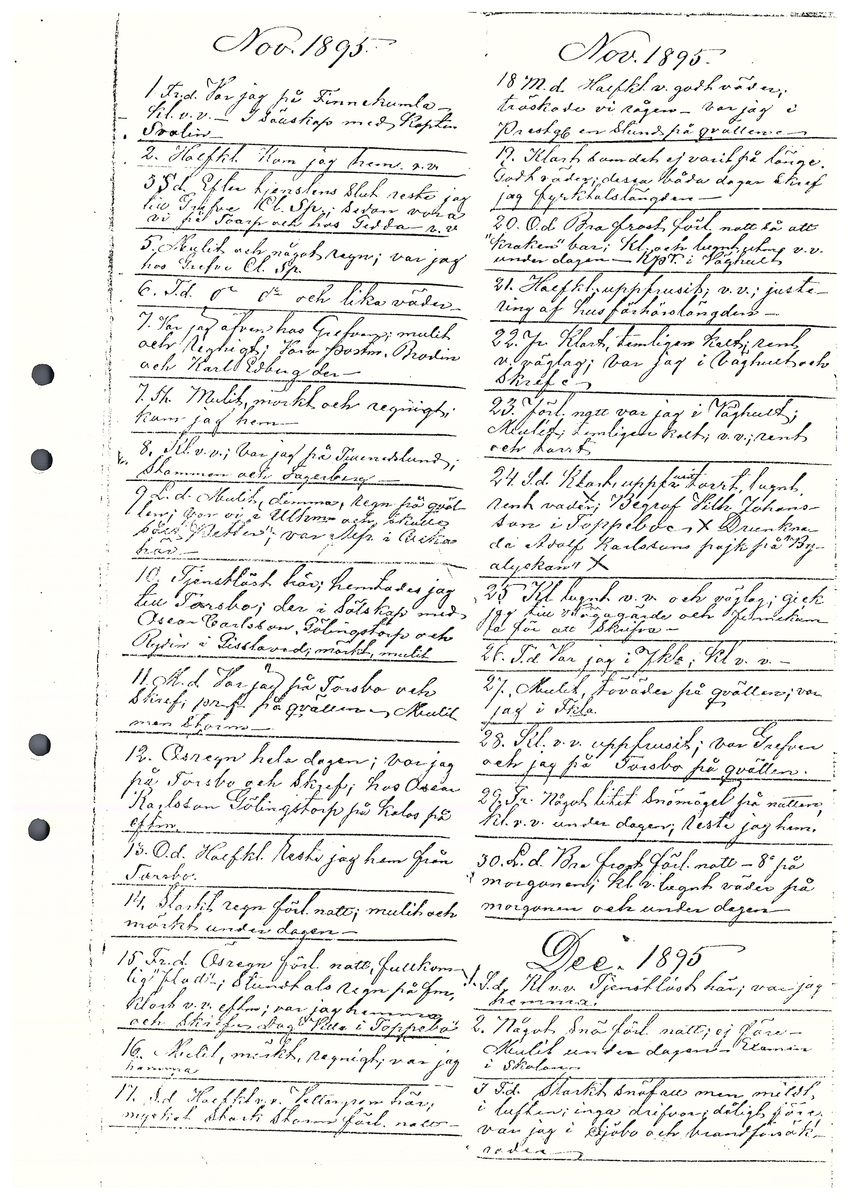 Nov. 1895.
1. Fr.d. Var jag på Finnekumla
kl. v.v. — I sällskap med Kapten
2. Halfkl. Kom jag hem. v.v
3 Sd. Efter tjenstens slut reste jag
till Grefve Cl. Sp.; sedan voro
vi på Toarp och hos Gedda v.v
5. Mulit och något regn; var jag
hos Grefve Cl. Sp.
6. T.d. och lika väder
7. Var jag äfven hos Grefven; mulit
och regnigt; Voro Brodin
och Karl Edberg der
7. Mulit, mörkt och regnigt;
kom jag hem
8. Kl. v.v.; Var jag på
och Fagerberg
9 L.d. Mulit, dimma, regn på qväl-
len; var vi i Ulkm och
var i
här
10. Tjenstlöst här; hemtades jag
till Torsbo; der i sälskap med
Oscar Carlsson, Gölingstorp och
Rydin i Gisslaved; mörkt, mulit
11. M.d Var jag på Torsbo och
skref; på qvällen Mulit
men storm
12. Ösregn hela dagen; var jag
på Torsbo och skref; hos Oscar
Karlsson Gölingstorp på kalas på
eftm.
13. O.d. Halfkl. Reste jag hem från
Torsbo.
14. Starkt regn förl. natt; mulit och
mörkt under dagen
15 Fr.d. Ösregn förl. natt, fullkom-
lig "flod"; Stundtals regn på fm,
klart v.v. eftm; var jag hemma
och skref i Toppebo
16. Mulit, mörkt, regnigt; var jag
hemma
17. S.d Halfkl v.v. här;
mycket stark storm förl. natt
Nov. 1895.
18 M.d. Halfkl v. godt väder;
tröskade vi rågen — var jag i
Prestg. en stund på qvällen
19. Klart som det ej varit på länge.
Godt väder; dessa båda dagar skref
jag
20. O.d Bra frost förl. natt så att
"kraken" bar; Kl. och lugnt v.v.
under dagen — i Våghult
21. Halfkl. uppfrusit; v.v.; juste-
ring af husförhörslängden
22. Fr. Klart, temligen kalt; rent
v. väglag; var jag i Våghult och
skref
23. Förl. natt var jag i Våghult;
Mulit; temligen kalt; v.v.; rent
och torrt
24 S.d Klart, uppfrusit torrt, lugnt,
rent väder; Begrof Vilh. Johans-
son i Toppebo X Drunkna-
de Adolf Karlssons pojk på "By-
alyckan" X
25 Kl lugnt v.v. och väglag; gick
jag till och Finnekum-
la för att skrifva
26. T.d Var jag i Fkla; Kl v.v.
27. Mulit, töväder på qvällen; var
jag i Fkla.
28. Kl. v.v. uppfrusit; var Grefven
och jag på Torsbo på qvällen.
29. Fr. Något litet på natten,
kl. v.v. under dagen; reste jag hem.
30. L.d. Bra frost förl. natt — 8° på
morgonen; kl v. lugnt väder på
morgonen och under dagen
Dec. 1895
1. S.d. Kl v.v Tjenstlöst här; var jag
hemma.
2. Något snö förl. natt; ej före
Mulit under dagen — Examen
i skolan
3 T.d. Starkt snöfall men mildt
i luften; inga drifvor; dåligt före;
var jag i Sjöbo och brandförsäk-
rade